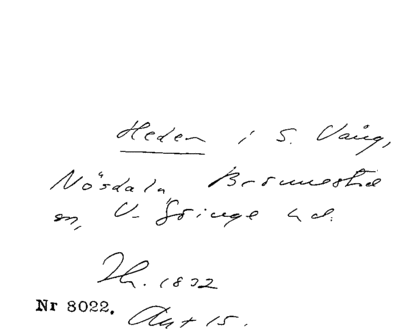 Heden i S. Vång,
Nösdala, Brönnestad
sn, V. Göinge hd.
Th. 1832
Nr 8022. Akt 15.